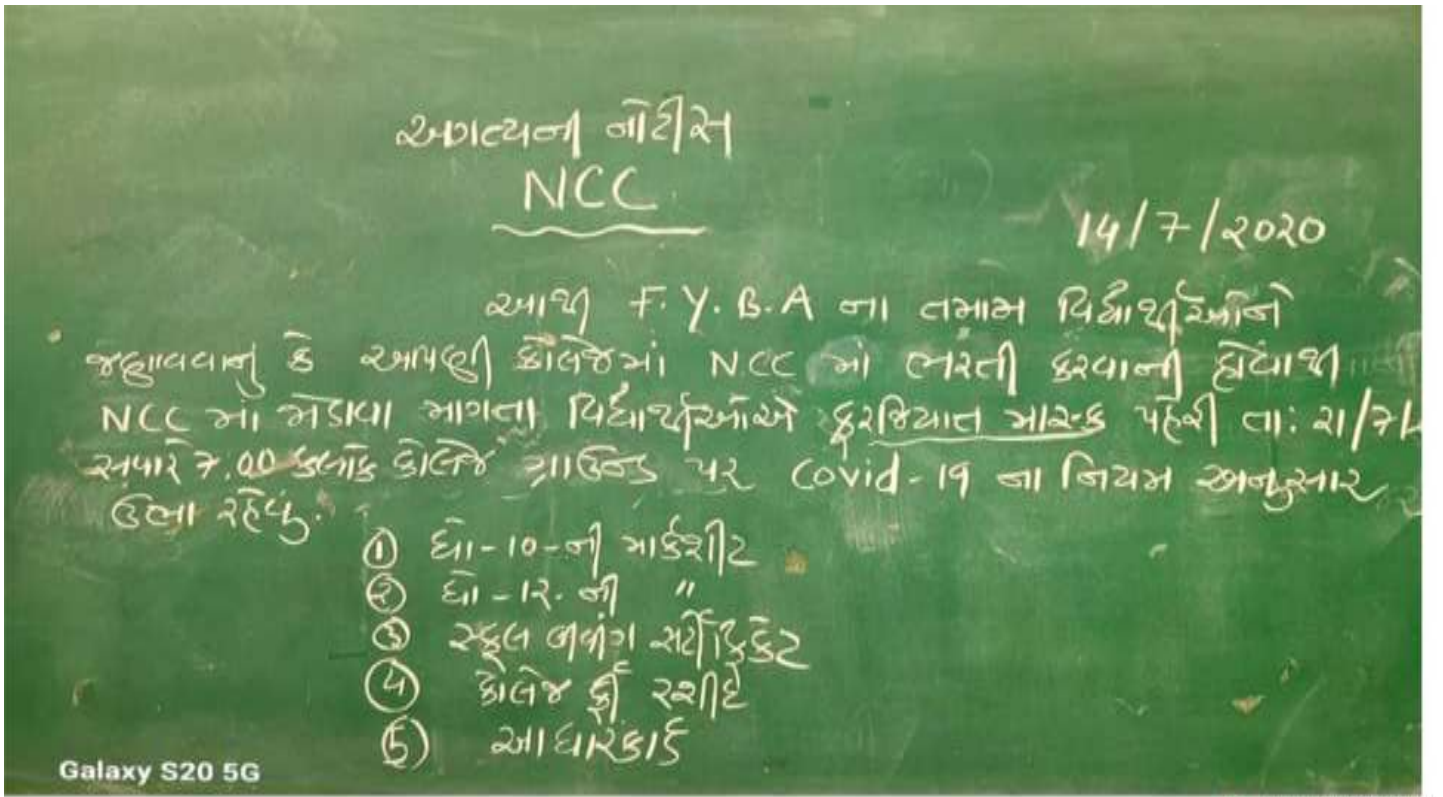 અગત્યની નોટીસ
NCC
14/7/૨૦૨૦
આથી F.Y.B.A ના તમામ વિદ્યાર્થીઓને
જણાવવાનું કે આપણી કોલેજમાં NCC માં ભરતી કરવાની હોવાથી
NCC માં જોડાવા માગતા વિદ્યાર્થીઓએ ફરજિયાત માસ્ક પહેરી તા: ૨૧/7/
સવારે 7.00 કલાકે કોલેજ ગ્રાઉન્ડ પર Covid-19 ના નિયમ અનુસાર
ઉભા રહેવું.
① ધો-10-ની માર્કશીટ
② ધો-1૨. ની "
③ સ્કૂલ લીવીંગ સર્ટીફિકેટ
④ કોલેજ ફી રશીદ
⑤ આધારકાર્ડ
Galaxy S20 5G